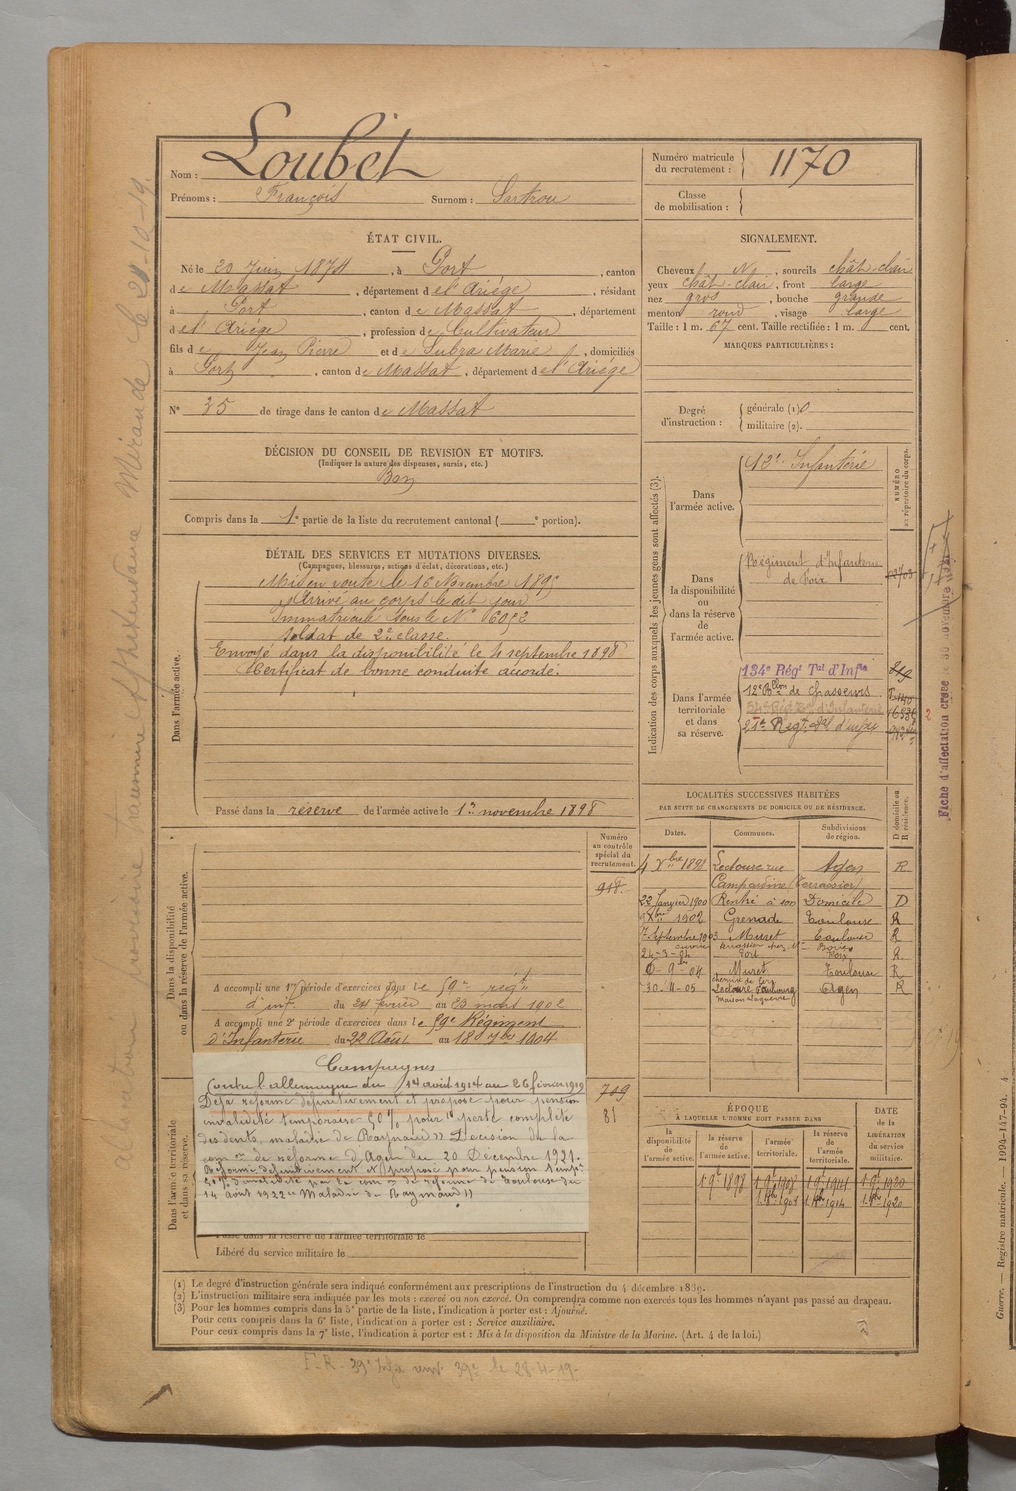 Nom : Loubet
Prénoms : François Surnom : Sartrou
Numéro matricule du recrutement : 1170
Classe de mobilisation :
ÉTAT CIVIL.
Né le 20 Juin 1874, à Port, canton
de Massat, département de l'Ariège, résidant
à Port, canton de Massat, département
de l'Ariège, profession de Cultivateur
fils de Jean Pierre et de Subra Marie, domiciliés
à Port, canton de Massat, département de l'Ariège
N° 35 de tirage dans le canton de Massat
SIGNALEMENT.
Cheveux N, sourcils chât-clair
yeux chât-clair, front large
nez gros, bouche grande
menton rond, visage large
Taille : 1 m. 67 cent. Taille rectifiée : 1 m. cent.
MARQUES PARTICULIÈRES :
Degré d'instruction : générale (1) 0
militaire (2).
DÉCISION DU CONSEIL DE REVISION ET MOTIFS.
(Indiquer la nature des dispenses, sursis, etc.)
Bon
Compris dans la 1e partie de la liste du recrutement cantonal ( e portion).
DÉTAIL DES SERVICES ET MUTATIONS DIVERSES.
(Campagnes, blessures, actions d'éclat, décorations, etc.)
Dans l'armée active.
Mis en route le 16 Novembre 1895
Arrivé au corps le dit jour
Immatriculé sous le N° 6052
soldat de 2e classe.
Envoyé dans la disponibilité le 4 septembre 1898
Certificat de bonne conduite accordé.
Passé dans la reserve de l'armée active le 1er novembre 1898
Indication des corps auxquels les jeunes gens sont affectés (3).
NUMÉRO au répertoire du corps.
Dans l'armée active.
12e Infanterie
Dans la disponibilité ou dans la réserve de l'armée active.
Régiment d'Infanterie
de Foix
Dans l'armée territoriale et dans sa réserve.
134e Régt Tal d'Infie
12e Bllon de chasseurs
Fiche d'affectation créée le 30 novembre
LOCALITÉS SUCCESSIVES HABITÉES
PAR SUITE DE CHANGEMENTS DE DOMICILE OU DE RÉSIDENCE.
Dates. Communes. Subdivisions de région. D domicile ou R résidence.
4 Xbre 1898 Lectoure rue Agen R
Campardine (Terrassier)
22 Janvier 1900 Rentré à son Domicile D
Xbre 1902 Grenade Toulouse R
7 Septembre 1903 Muret Toulouse R
24-3-04 Port Foix R
6-9bre-04 Muret Toulouse R
30.4-05 Lectoure Faubourg Agen R
Maison Laguerre
Numéro au contrôle spécial du recrutement.
918.
Dans la disponibilité ou dans la réserve de l'armée active.
A accompli une 1re période d'exercices dans le 59e régt
d'inf. du 24 février au 23 mars 1902
A accompli une 2e période d'exercices dans le 59e Régiment
d'Infanterie du 22 Août au 18 7bre 1904
Dans l'armée territoriale et dans sa réserve.
Campagnes
Contre l'allemagne du 14 août 1914 au 26 février 1919
Déjà réformé définitivement et proposé pour pension
invalidité temporaire 50% pour 1° perte complète
des dents, maladie de Raynaud » Décision de la
comon de réforme d'Agen du 20 Décembre 1921.
Réformé définitivement N°1 proposé pour pension temp.
d'invalidité par la comon de réforme de Toulouse du
14 Août 1922 « Maladie de Raymaud »
709
81
Passé dans la réserve de l'armée territoriale le
Libéré du service militaire le
ÉPOQUE
À LAQUELLE L'HOMME DOIT PASSER DANS
DATE DE LA LIBÉRATION du service militaire.
la disponibilité de l'armée active. la réserve de l'armée active. l'armée territoriale. la réserve de l'armée territoriale.
1 9bre 1898 1 9bre 1908 1 9bre 1914 1 9bre 1920
(1) Le degré d'instruction générale sera indiqué conformément aux prescriptions de l'instruction du 4 décembre 1889.
(2) L'instruction militaire sera indiquée par les mots : exercé ou non exercé. On comprendra comme non exercés tous les hommes n'ayant pas passé au drapeau.
(3) Pour les hommes compris dans la 5e partie de la liste, l'indication à porter est : Ajourné.
Pour ceux compris dans la 6e liste, l'indication à porter est : Service auxiliaire.
Pour ceux compris dans la 7e liste, l'indication à porter est : Mis à la disposition du Ministre de la Marine. (Art. 4 de la loi.)
39e le 28-4-19-
Guerre. — Registre matricule. — 1994-147-94. 4.